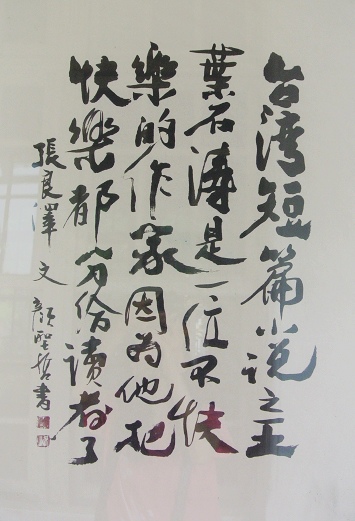 台湾短篇小说之王
葉石濤是一位不快
樂的作家因為他把
快樂都分给讀者了
張良澤文 顏聖哲書